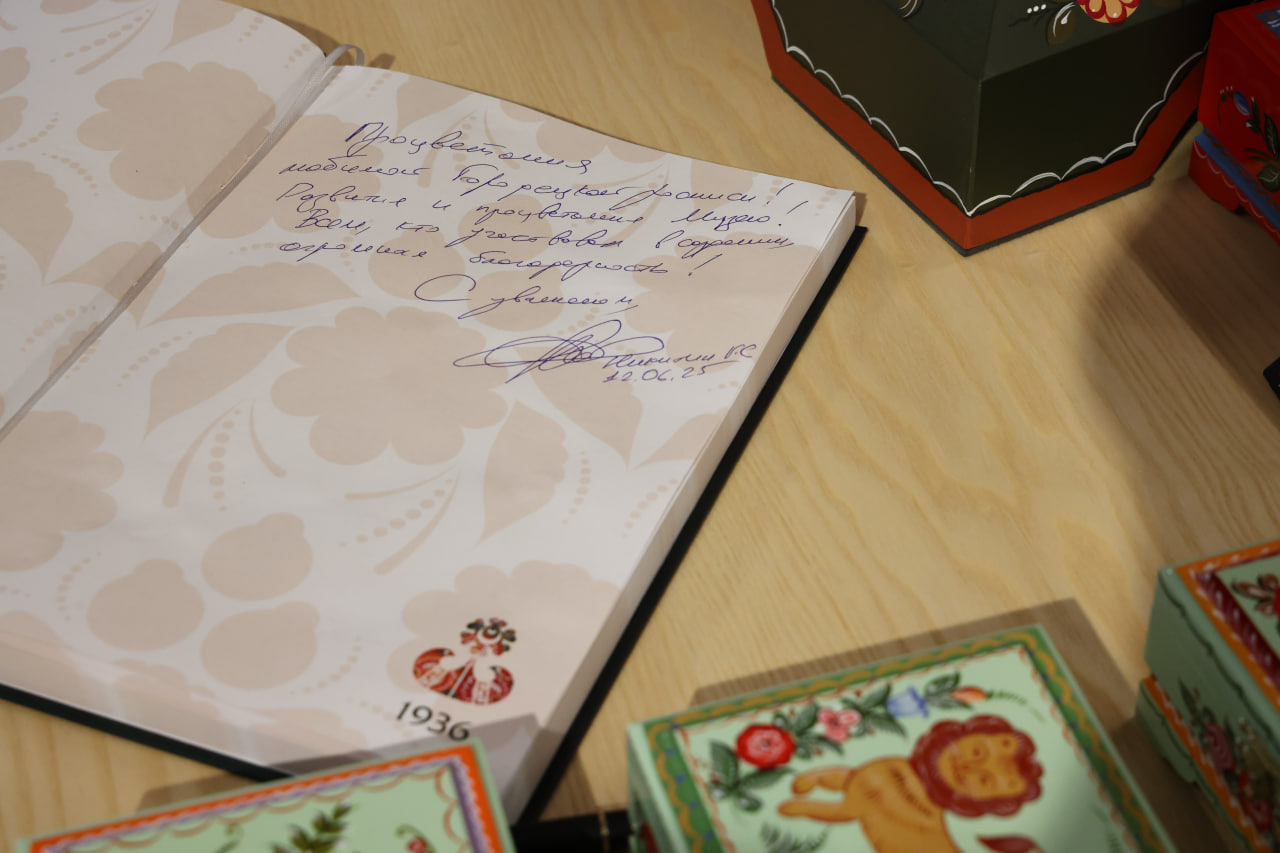 Процветания
любимой Городецкой росписи!
Развития и процветания Музею!
Всем, кто участвовал в создании,
огромная благодарность!
С уважением,
Никитин Г.С
12.06.25
1936